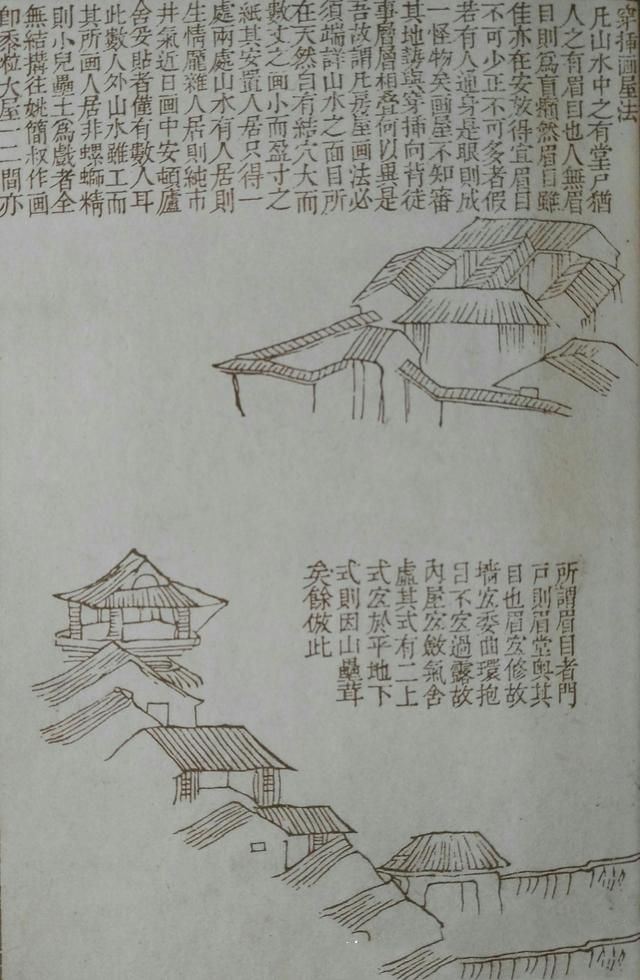 穿插画屋法
凡山水中之有堂戶猶
人之有眉目也人無眉
目則為盲癩然眉目雖
佳亦在安放得宜眉目
不可少正不可多者假
若有人通身是眼則成
一怪物矣画屋不知審
其地勢與穿插向背徒
事層層相疊其何以異是
吾故謂凡房屋画法必
須端詳山水之面目所
在天然自有結穴大而
數丈之画小而盈寸之
紙其安置人居只得一
處兩處山水有人居則
生情龐雜人居則純市
井氣近日画中安頓廬
舍妥貼者僅有數人耳
此數人外山水雖工而
其所画人居非螺螄精
則小兒壘土為戲者全
無結搆往姚簡叔作画
即黍粒大屋一二間亦
所謂眉目者門
戶則眉堂奧其
目也眉宜修故
墻宜委曲環抱
目不宜過露故
內屋宜斂氣含
虛其式有二上
式宜於平地下
式則因山壘葺
矣餘倣此